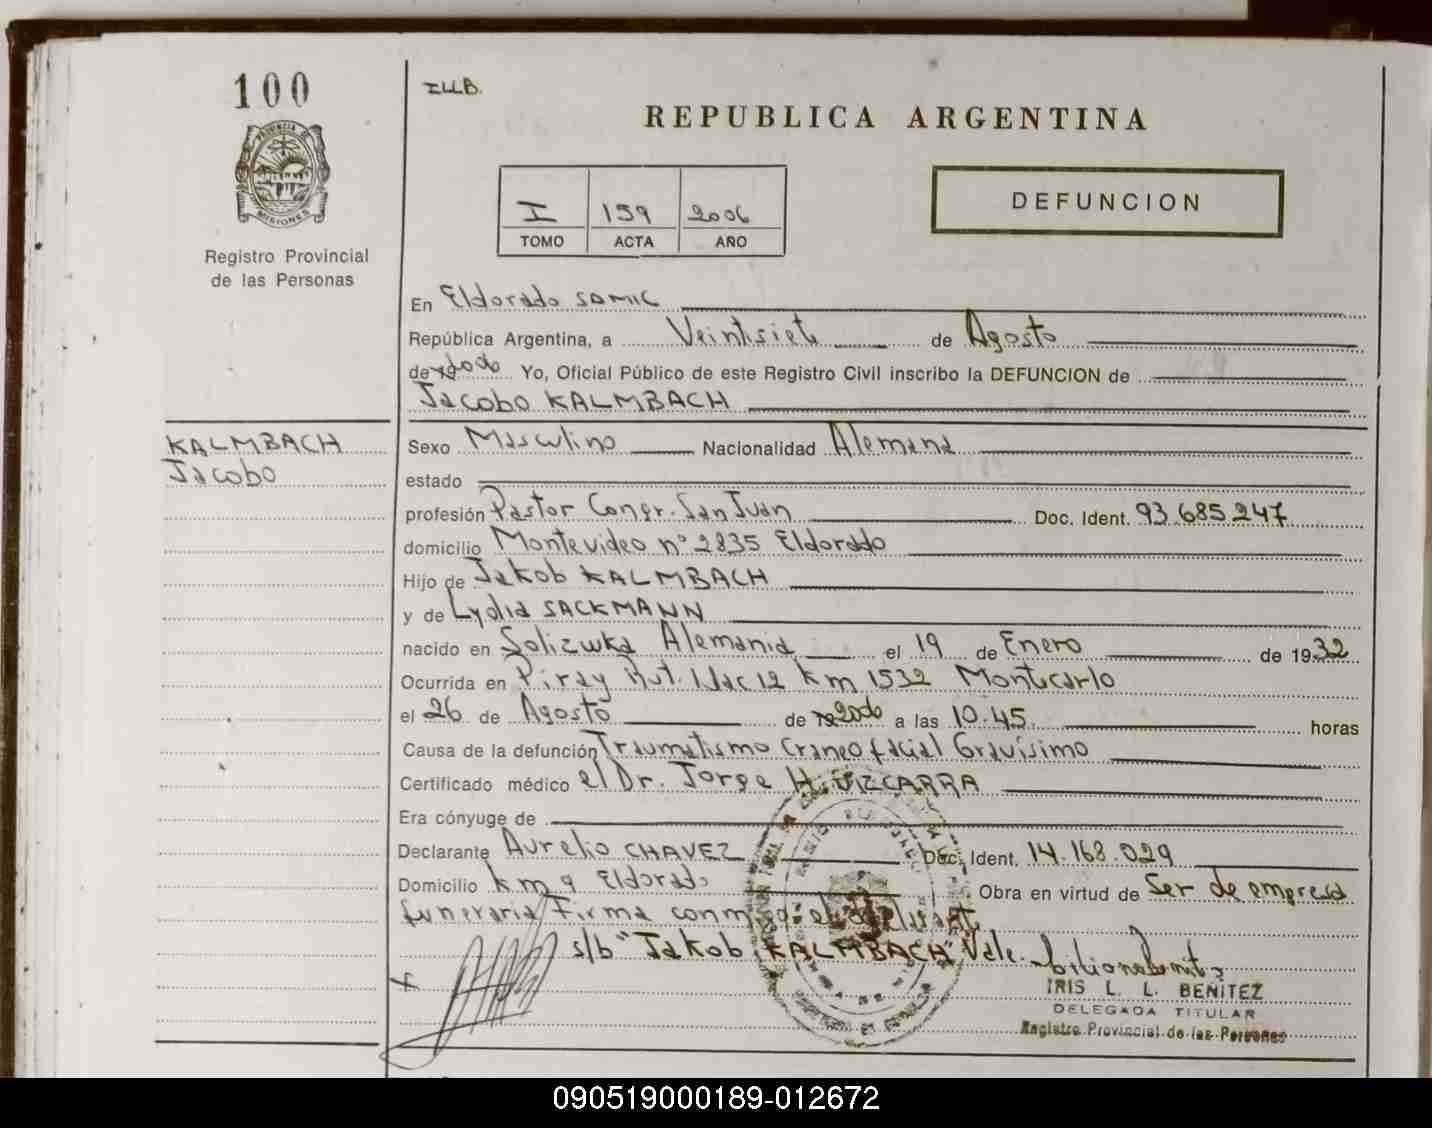 100
ILLB.
REPUBLICA ARGENTINA
PROVINCIA DE
MISIONES
DEFUNCION
I 159 2006
TOMO ACTA AÑO
Registro Provincial
de las Personas
En Eldorado SAMIC
República Argentina, a Veintisiete de Agosto
de Yo, Oficial Público de este Registro Civil inscribo la DEFUNCION de
Jacobo KALMBACH
KALMBACH
Jacobo
Sexo Masculino Nacionalidad Alemana
estado
profesión Pastor Congr. San Juan Doc. Ident. 93.685.247
domicilio Montevideo nº 2835 Eldorado
Hijo de Jakob KALMBACH
y de Lydia SACKMANN
nacido en Solizwka Alemania el 19 de Enero de 1932
Ocurrida en Piray Rut. Nac 12 Km 1532 Montecarlo
el 26 de Agosto de a las 10.45. horas
Causa de la defunción Traumatismo Craneo facial Gravísimo
Certificado médico el Dr. Jorge H. VIZCARRA
Era cónyuge de
Declarante Aurelio CHAVEZ Doc. Ident. 14.168.029
Domicilio km 9 Eldorado Obra en virtud de Ser de empresa
funeraria Firma conmigo el declarante
s/b "Jakob KALMBACH" Vale.
IRIS L. L. BENITEZ
DELEGADA TITULAR
Registro Provincial de las Personas
090519000189-012672